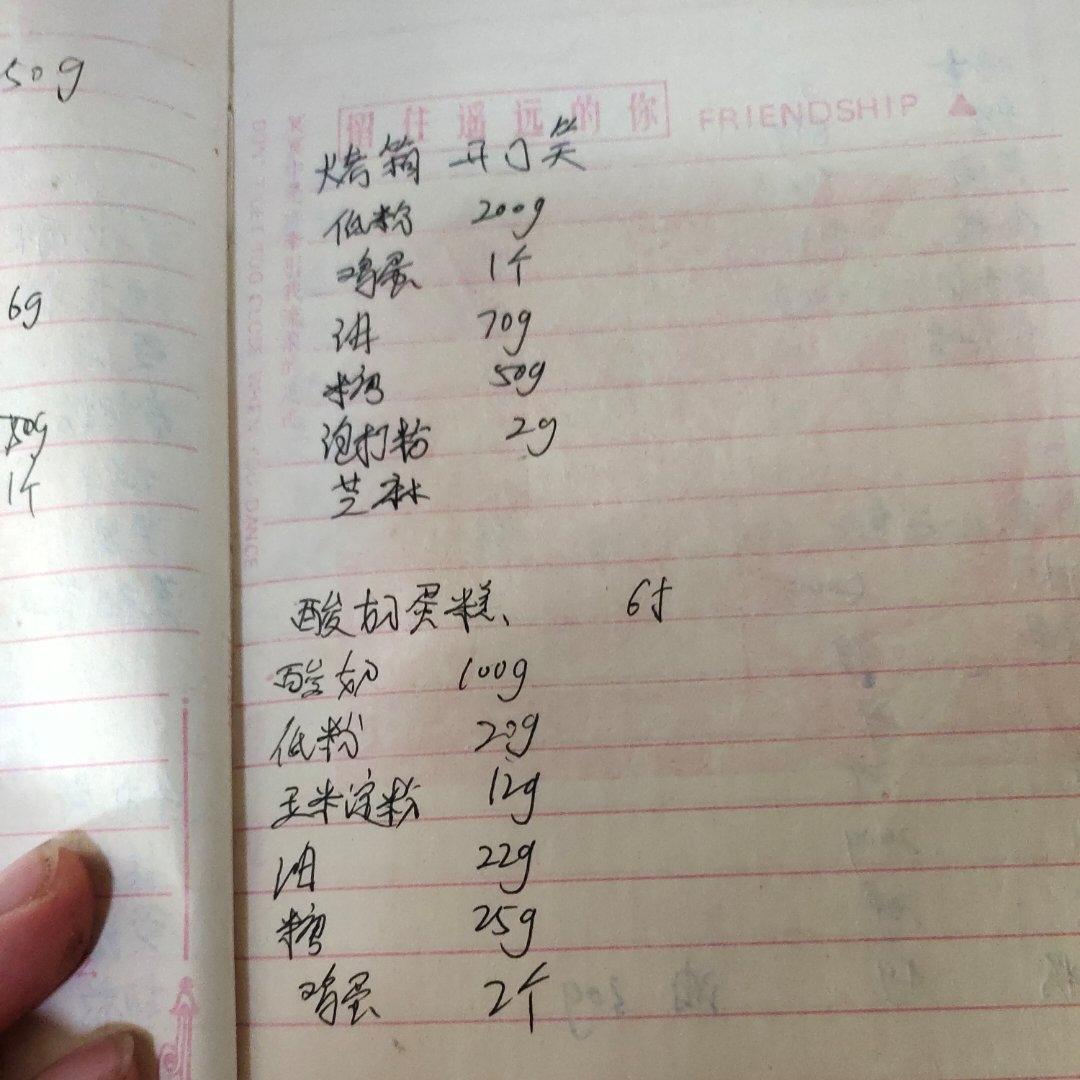 50g
6g
50g
1个
留住遥远的你 FRIENDSHIP
烤箱 开口笑
低粉 200g
鸡蛋 1个
油 70g
糖 50g
泡打粉 2g
芝麻
酸奶蛋糕、 6寸
酸奶 100g
低粉 20g
玉米淀粉 12g
油 22g
糖 25g
鸡蛋 2个